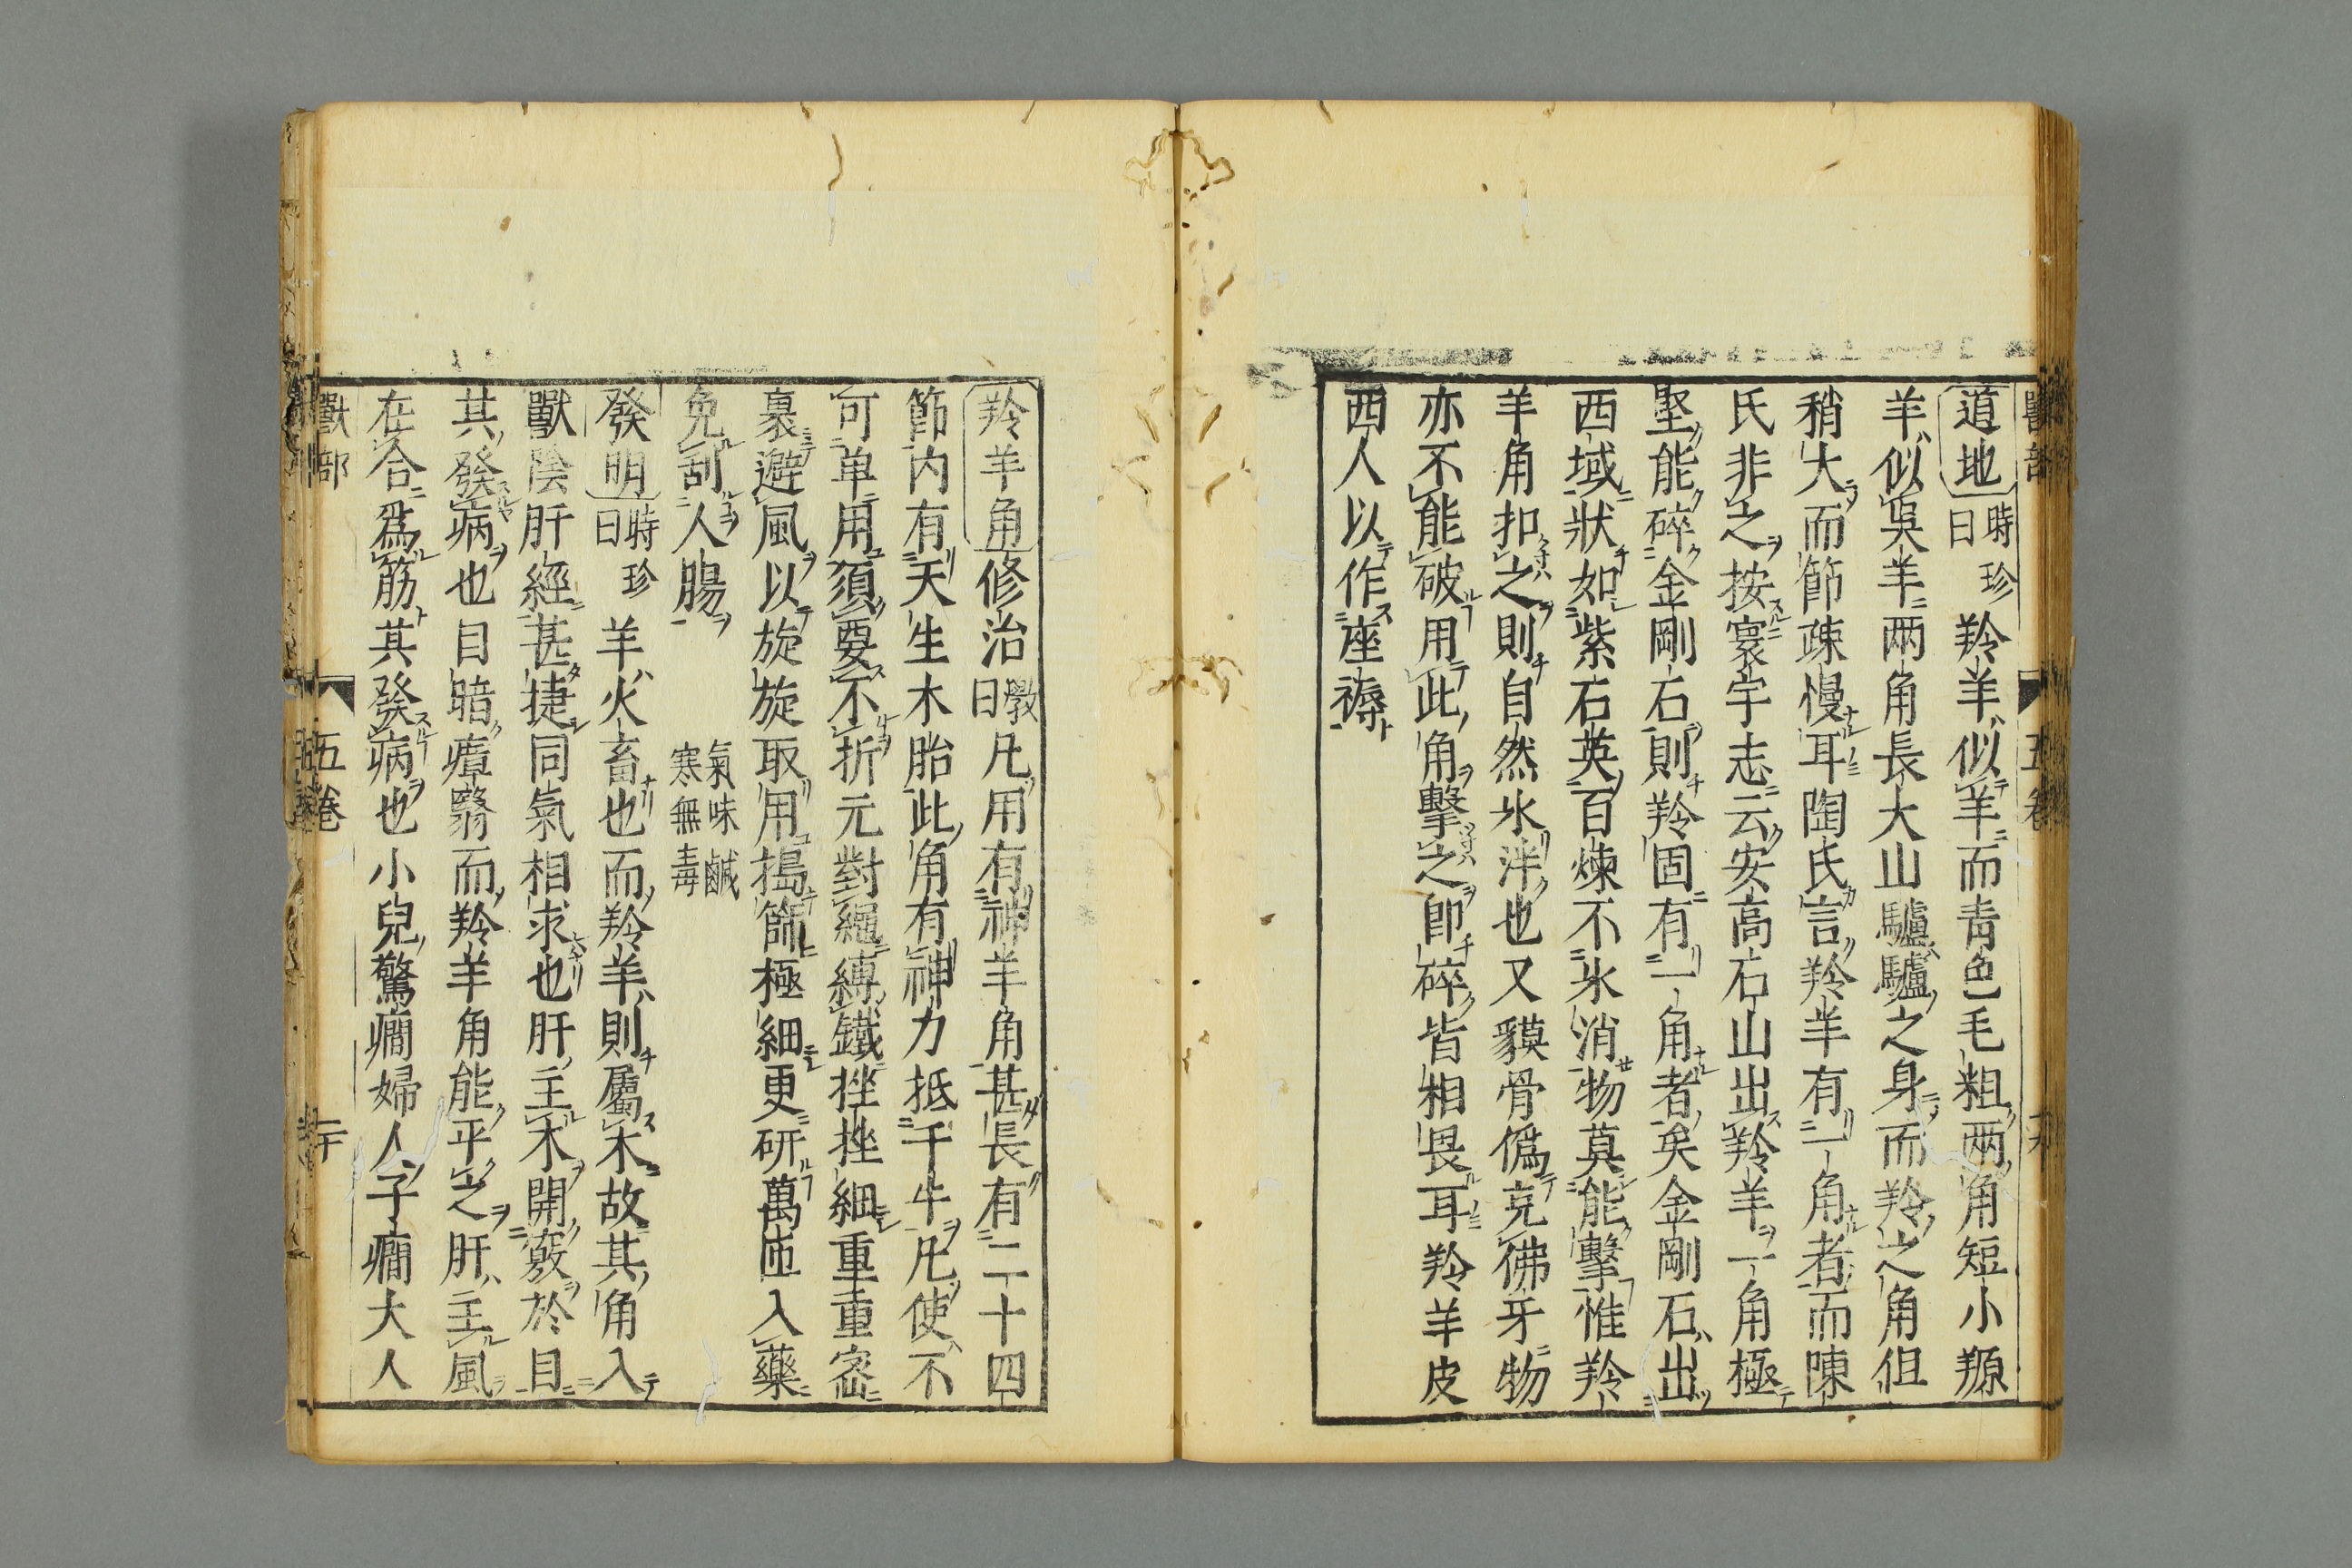 獸部 五卷
道地 時珍曰 羚羊似羊而青色毛粗兩角短小羱
羊似吳羊兩角長大山驢驢之身而羚之角但
稍大而節疎慢耳陶氏言羚羊有一角者而陳
氏非之按寰宇志云安高石山出羚羊一角極
堅能碎金剛石則羚固有一角者矣金剛石出
西域狀如紫石英百煉不氷消物莫能擊惟羚
羊角扣之則自然氷泮也又貘骨僞充佛牙物
亦不能破用此角擊之卽碎皆相畏耳羚羊皮
西人以作座褥
羚羊角 修治 斆曰 凡用有神羊角甚長有二十四
節內有天生木胎此角有神力抵千牛凡使不
可单用須要不折元對繩縛鐵挫挫細重重宻
裹避風以旋旋取用搗篩極細更研萬匝入藥
免刮人腸 氣味鹹寒無毒
發明 時珍曰 羊火畜也而羚羊則屬木故其角入
獸陰肝經甚捷同氣相求也肝主木開竅於目
其發病也目暗瘴翳而羚羊角能平之肝主風
在合爲筋其發病也小兒驚癎婦人子癎大人
獸部 五卷 二十